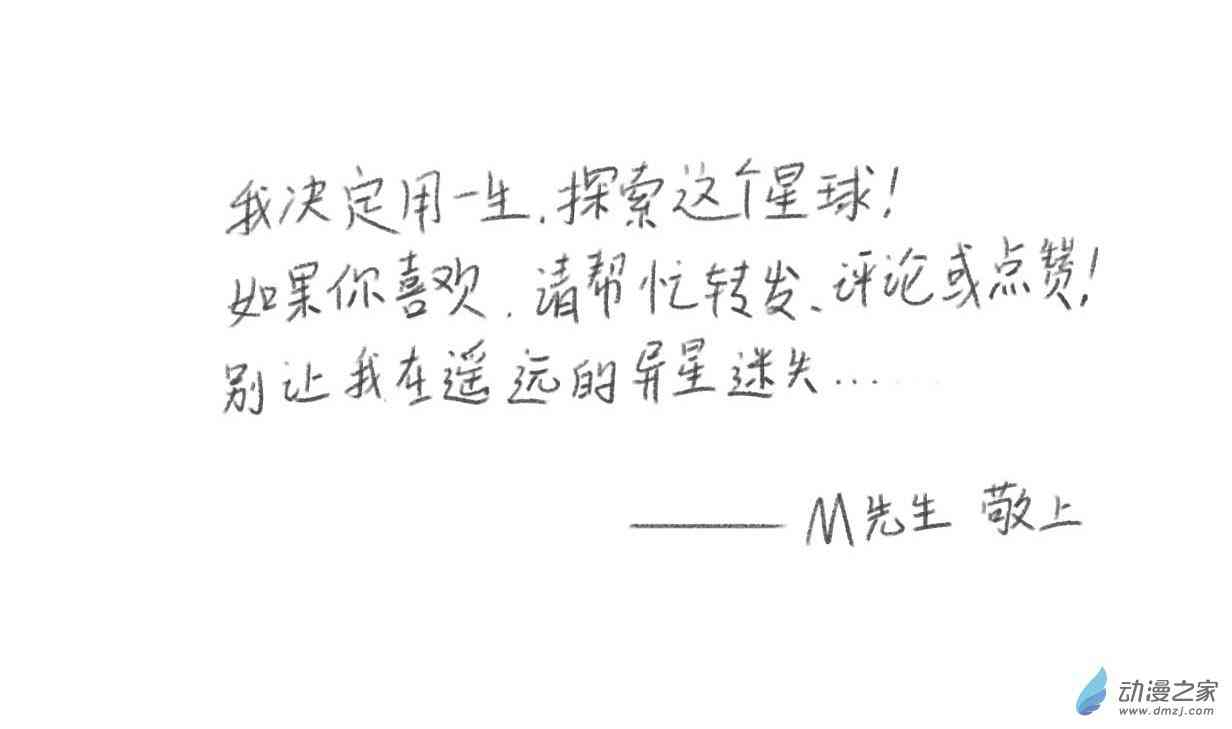 我决定用一生,探索这个星球!
如果你喜欢,请帮忙转发、评论或点赞!
别让我在遥远的异星迷失……
——M先生 敬上
动漫之家
www.dmzj.com